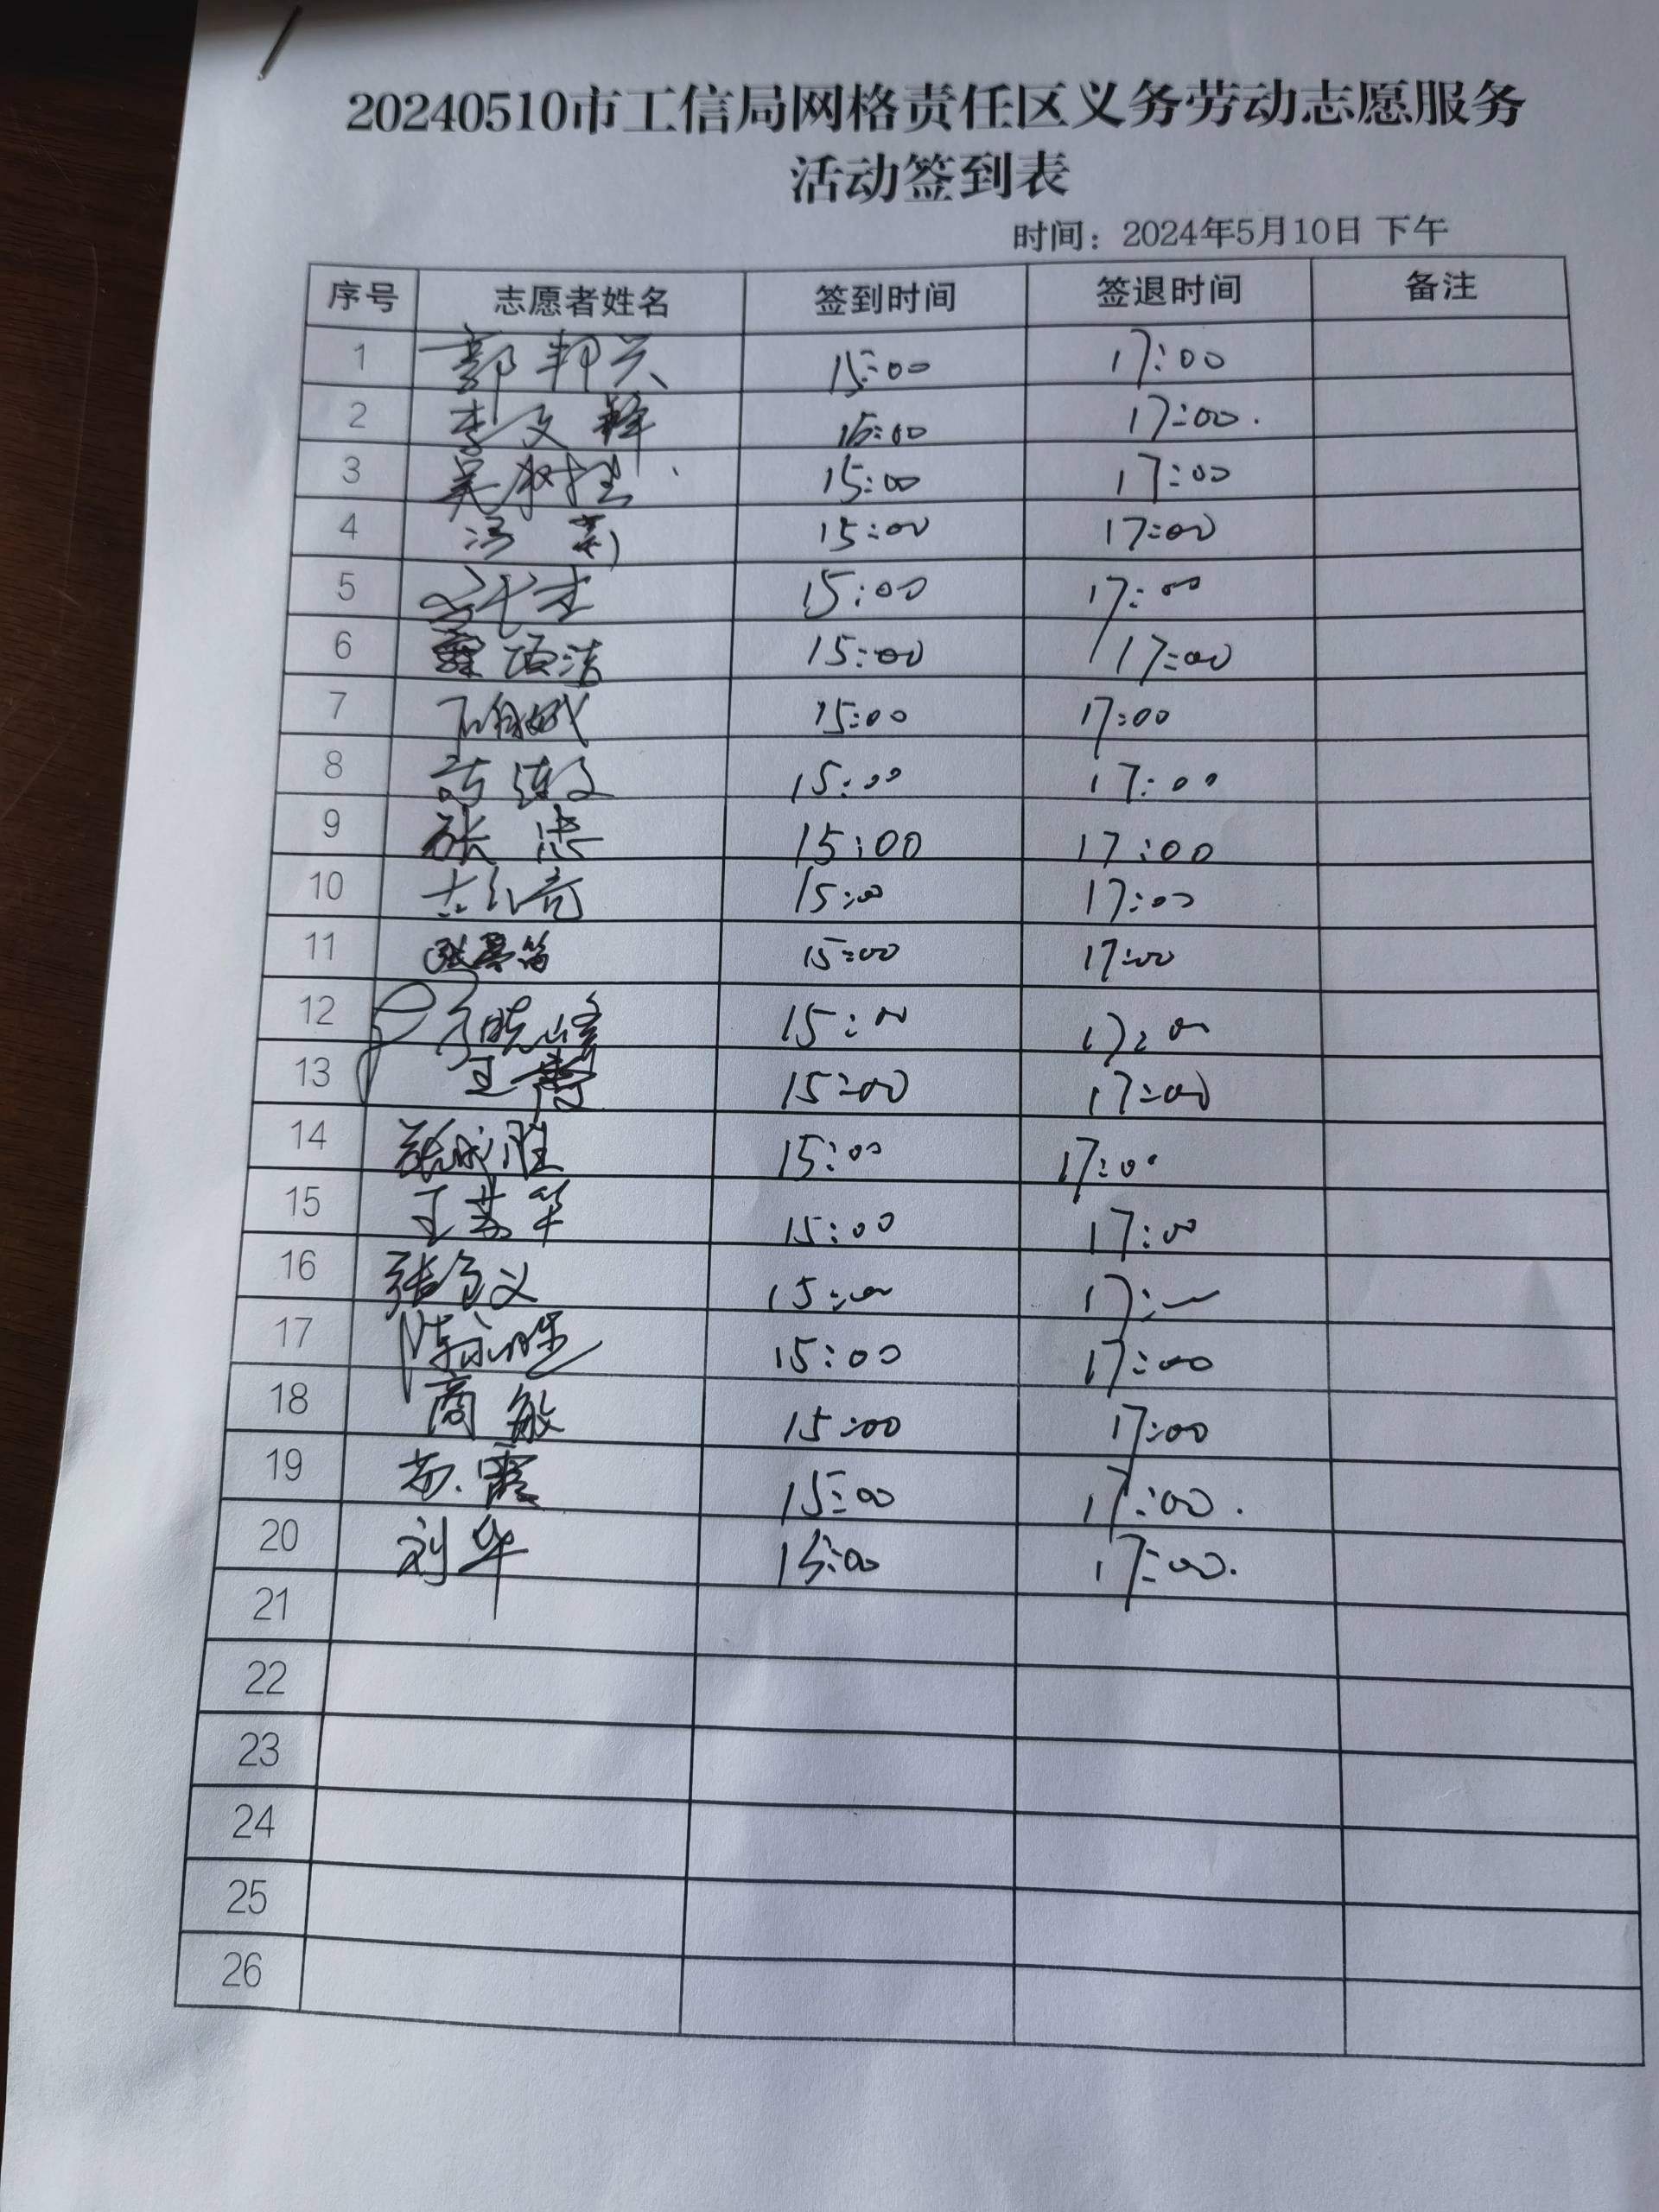 20240510市工信局网格责任区义务劳动志愿服务
活动签到表
时间：2024年5月10日 下午
序号 志愿者姓名 签到时间 签退时间 备注
1 郭邦兴 15:00 17:00
2 李文 15:00 17:00.
3 吴树 15:00 17:00
4 汤莉 15:00 17:00
5 15:00 17:00
6 15:00 17:00
7 15:00 17:00
8 15:00 17:00
9 张忠 15:00 17:00
10 15:00 17:00
11 15:00 17:00
12 晓峰 15:00 17:00
13 王 15:00 17:00
14 15:00 17:00
15 王 15:00 17:00
16 张 义 15:00 17:
17 陈 15:00 17:00
18 商敏 15:00 17:00
19 苏霞 15:00 17:00.
20 刘华 15:00 17:00.
21
22
23
24
25
26